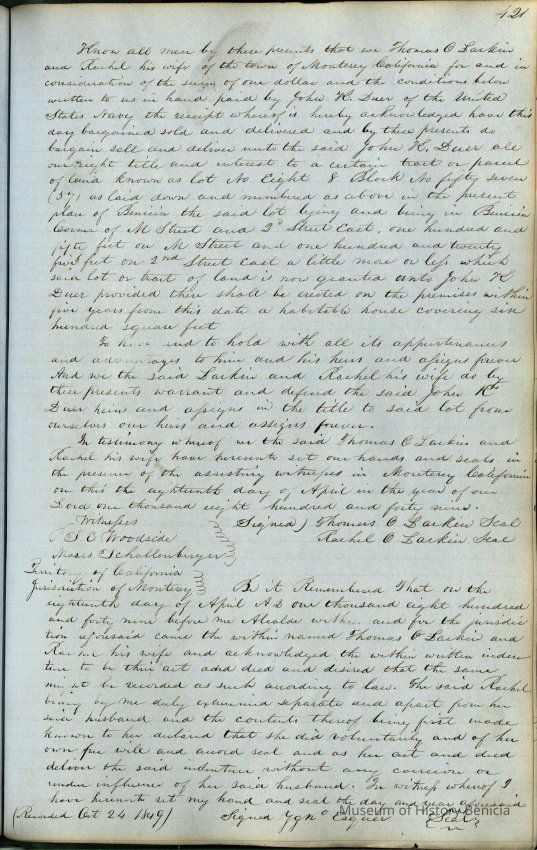 421
Know all men by these presents that we Thomas O Larkin
and Rachel his wife of the town of Monterey California for and in
consideration of the sum of one dollar and the conditions below
written to us in hand paid by John K. Duer of the United
States Navy the receipt whereof is hereby acknowledged have this
day bargained sold and delivered and by these presents do
bargain sell and deliver unto the said John K. Duer all
our right title and interest to a certain tract or parcel
of land known as lot No Eight 8 Block No fifty seven
(57) as laid down and numbered as above in the present
plan of Benicia the said lot lying and being in Benicia
Corner of M Street and 2d Street East, one hundred and
fifty feet on M Street and one hundred and twenty
five feet on 2nd Street East a little more or less which
said lot or tract of land is now granted unto John K
Duer provided there shall be erected on the premises within
five years from this date a habitable house covering six
hundred square feet
To have and to hold with all its appurtenances
and advantages to him and his heirs and assigns forever
And we the said Larkin and Rachel his wife do by
these presents warrant and defend the said John K
Duer heirs and assigns in the title to said lot from
ourselves our heirs and assigns forever.
In testimony whereof we the said Thomas O Larkin and
Rachel his wife have hereunto set our hands and seals in
the presence of the assisting witnesses in Monterey California
on this the eighteenth day of April in the year of our
Lord one thousand eight hundred and forty nine.
Witnesses Signed) Thomas O Larkin Seal
Woodside Rachel O Larkin Seal
Moses Schallenberger
Territory of California
Jurisdiction of Monterey Be it Remembered That on the
eighteenth day of April AD one thousand eight hundred
and forty nine before me Alcalde within and for the jurisdic
tion aforesaid came the within named Thomas O Larkin and
Rachel his wife and acknowledged the within written inden
ture to be their act and deed and desired that the same
might be recorded as such according to law. The said Rachel
being by me duly examined separate and apart from her
said husband and the contents thereof being first made
known to her declared that she did voluntarily and of her
own free will and accord seal and as her act and deed
deliver the said indenture without any coercion or
under influence of her said husband. In witness whereof I
have hereunto set my hand and seal the day and year aforesaid
(Recorded Oct 24 1849) Signed Ygno Esquer Seal
Museum of History Benicia